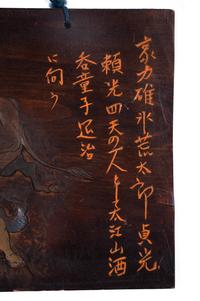 豪力碓氷荒太郎貞光
頼光四天の一人として大江山酒
呑童子退治
に向う